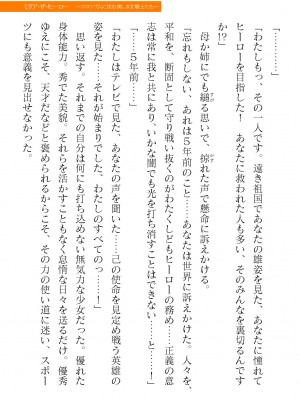 「………」
「わたしもっ、その一人です。遠き祖国であなたの雄姿を見た、あなたに憧れて
ヒーローを目指した！　あなたに救われた人も多い、そのみんなを裏切るんです
か!?」
　母か姉にでも縋る思いで、掠れた声で懸命に訴えかける。
「忘れもしない、あれは５年前のこと……あなたは世界に訴えかけた。人々を、
平和を、断固として守り戦い抜くのがわたくしどもヒーローの務め……正義の意
志は常に我と共にあり、いかなる闇でも光を打ち消すことはできない、と……！」
「……５年前……」
「わたしはテレビで見た、あなたの声を聞いた……己の使命を見定め戦う英雄の
姿を見た……それが始まりでした、わたしのすべてのっ……！」
　思い返す。それまでの自分は何にも打ち込めない無気力な少女だった。優れた
身体能力。秀でた美貌。それらを活かすこともなく怠惰な日々を送るだけ。優秀
ゆえにこそ、天才だなどと褒められるからこそ、その力の使い道に迷い、スポー
ツにも意義を見出せなかった。